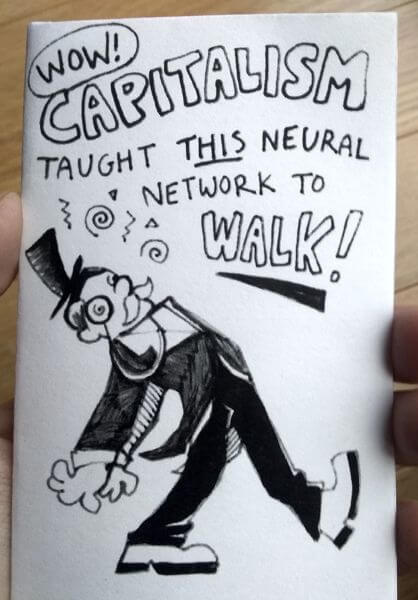 WOW!
CAPITALISM
TAUGHT THIS NEURAL
NETWORK TO
WALK!